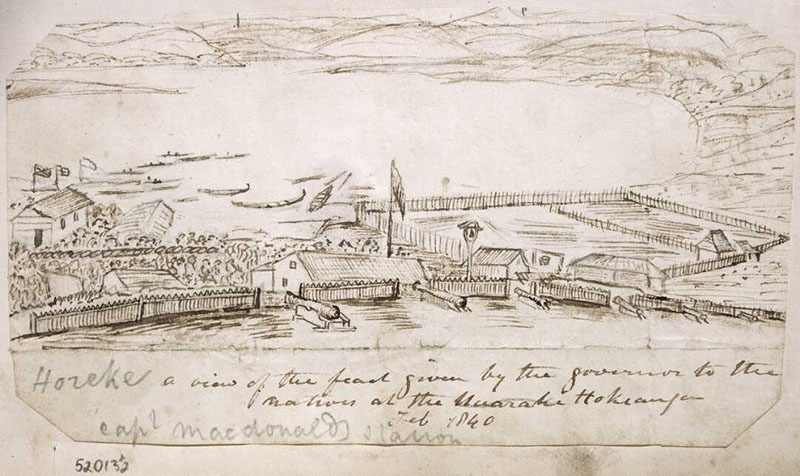 Horeke a view of the feast given by the governor to the
natives at the Huarake Hokeanga
Feb 1840
Capt Macdonalds Station
52013½